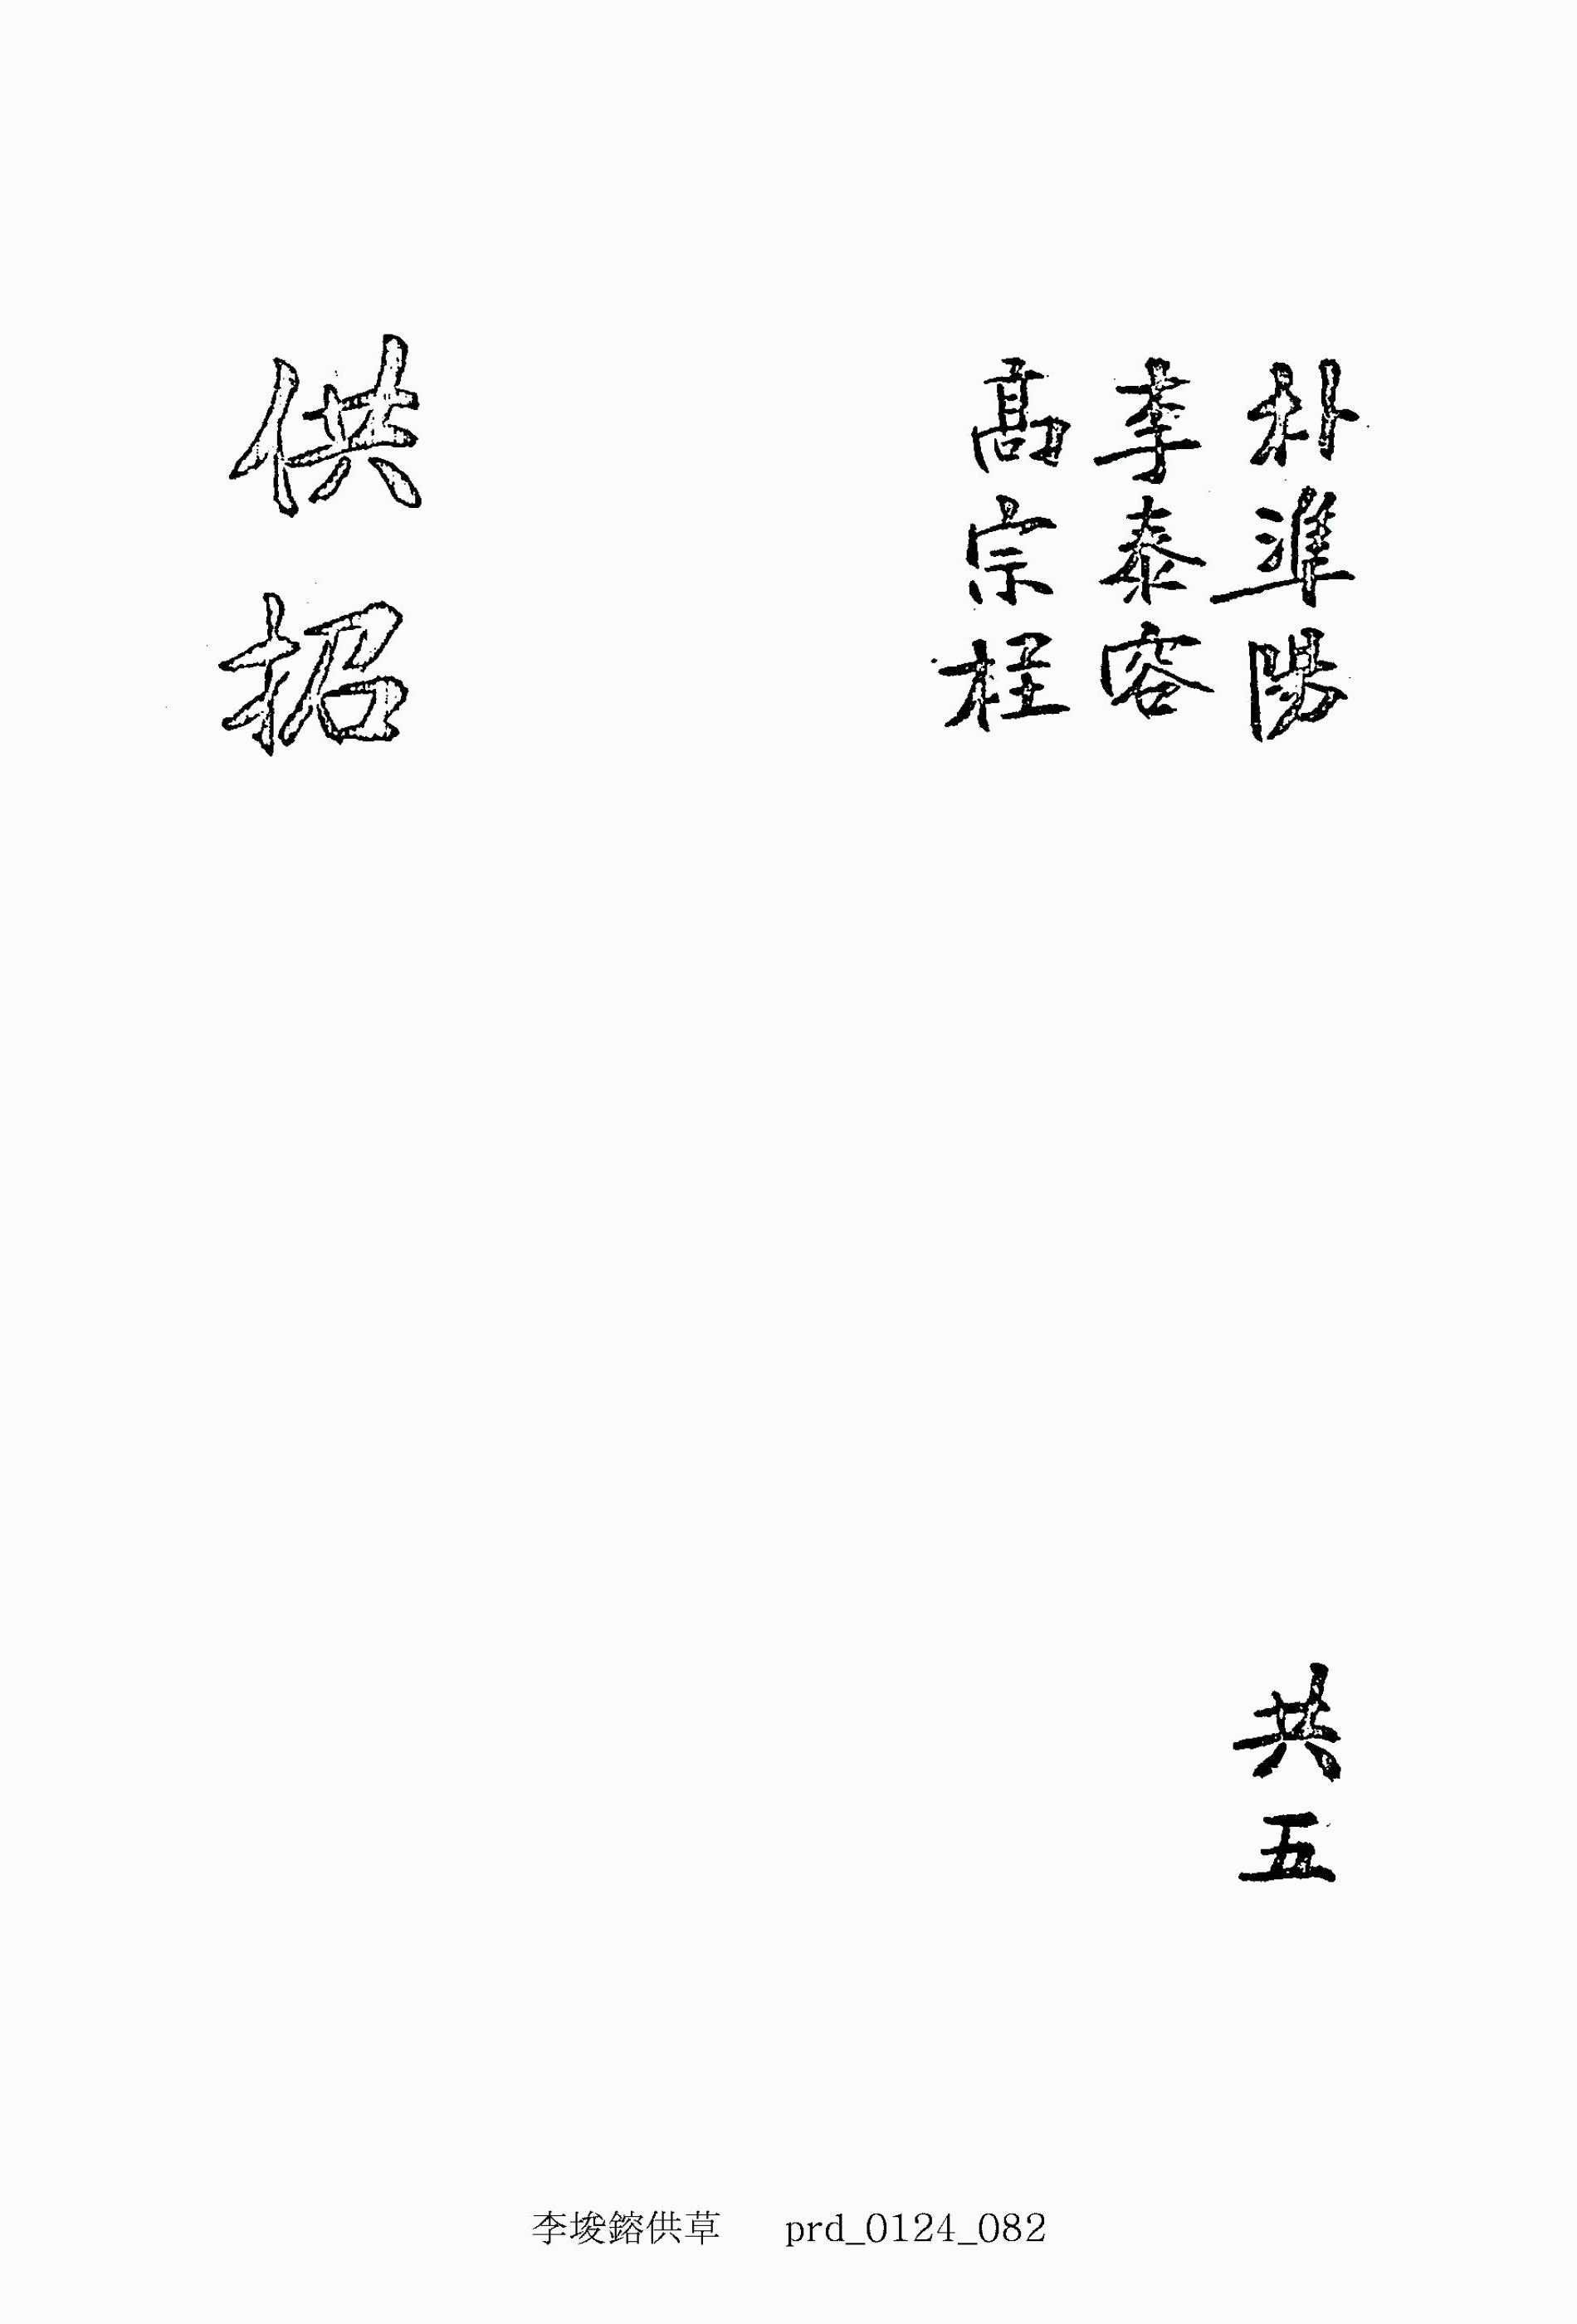 朴準陽
李泰容
高宗柱
共五
供招
李埈鎔供草 prd_0124_082